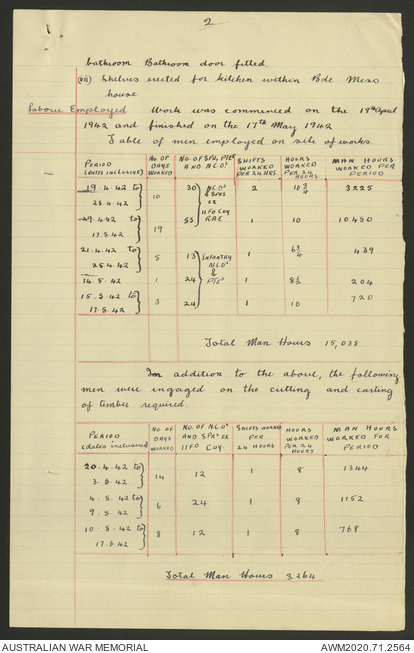 2
bathroom Bathroom door fitted.
(vii) Shelves erected for kitchen within Bde Mess
house
Labour Employed Work was commenced on the 19th April
1942 and finished on the 17th May 1942
Table of men employed on site of works.
PERIOD (DATES INCLUSIVE) NO OF DAYS WORKED NO. OF SPR, PTES AND N.C.O's SHIFTS WORKED PER 24 HRS HOURS WORKED PER 24 HOURS MAN HOURS WORKED PER PERIOD
19.4.42 to 28.4.42 10 30 N.C.O's & SPRS ex 11 FD COY RAE 2 10 3/4 3225
29.4.42 to 17.5.42 19 55 1 10 10450
21.4.42 to 25.4.42 5 13 INFANTRY N.C.O's & PTES 1 6 3/4 439
14.5.42 1 24 1 8 1/2 204
15.5.42 to 17.5.42 3 24 1 10 720
Total Man Hours 15,038
In addition to the above, the following
men were engaged on the cutting and carting
of timber required.
PERIOD (dates inclusive) NO. OF DAYS WORKED NO. OF N.C.O's AND SPRS EX 11 FD COY. SHIFTS WORKED PER 24 HOURS HOURS WORKED PER 24 HOURS MAN HOURS WORKED FOR PERIOD
20.4.42 to 3.5.42 14 12 1 8 1344
4.5.42 to 9.5.42 6 24 1 8 1152
10.5.42 to 17.5.42 8 12 1 8 768
Total Man Hours 3.264
AUSTRALIAN WAR MEMORIAL AWM2020.71.2564